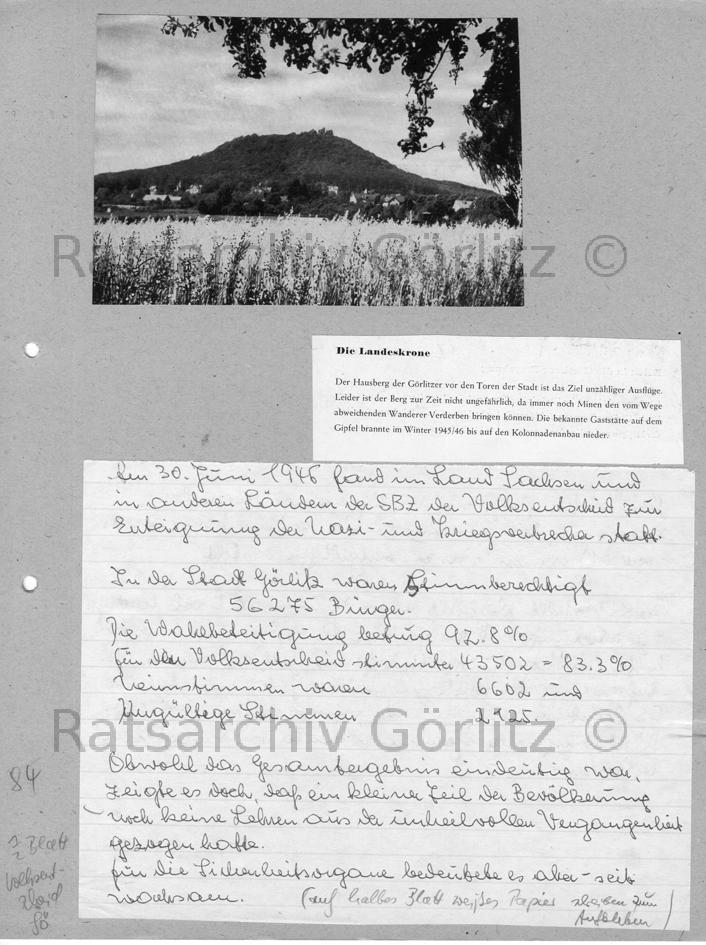 Ratsarchiv Görlitz ©
Die Landeskrone
Der Hausberg der Görlitzer vor den Toren der Stadt ist das Ziel unzähliger Ausflüge.
Leider ist der Berg zur Zeit nicht ungefährlich, da immer noch Minen den vom Wege
abweichenden Wanderer Verderben bringen können. Die bekannte Gaststätte auf dem
Gipfel brannte im Winter 1945/46 bis auf den Kolonnadenanbau nieder.
Am 30. Juni 1946 fand im Land Sachsen und
in anderen Ländern der SBZ der Volksentscheid zur
Enteignung der Nazi- und Kriegsverbrecher statt.
In der Stadt Görlitz waren Stimmberechtigt
56275 Bürger.
Die Wahlbeteiligung betrug 92.8%
für den Volksentscheid stimmten 43502 = 83.3%
Neinstimmen waren 6602 und
Ungültige Stimmen 2125.
Ratsarchiv Görlitz ©
Obwohl das Gesamtergebnis eindeutig war,
zeigte es doch, daß ein kleiner Teil der Bevölkerung
noch keine Lehren aus der unheilvollen Vergangenheit
gezogen hatte.
für die Sicherheitsorgane bedeutete es aber - seid
wachsam.
(auf halbes Blatt weißes Papier schreiben zum
Aufkleben)
84
1/2 Blatt
Volksent-
scheid